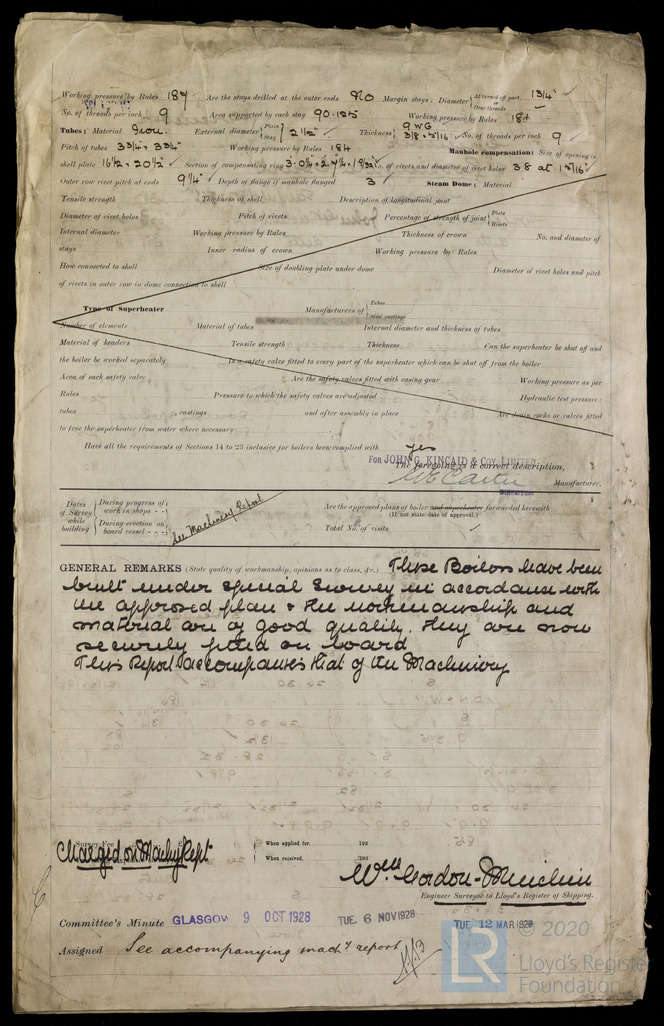 Working pressure by Rules 187 Are the stays drilled at the outer ends No Margin stays: Diameter { At turned off part, or Over threads 1 3/4"
No. of threads per inch 9 Area supported by each stay 90.125 Working pressure by Rules 184
Tubes: Material Iron External diameter { Plain Stay 2 1/2" Thickness { 9 WG 3/8 & 5/16 No. of threads per inch 9
Pitch of tubes 3 3/4 × 3 3/4" Working pressure by Rules 184 Manhole compensation: Size of opening in
shell plate 16 1/2 × 20 1/2" Section of compensating ring No. of rivets and diameter of rivet holes 38 at 1 5/16"
Outer row rivet pitch at ends 9 1/4" Depth of flange if manhole flanged 3 Steam Dome: Material
Tensile strength Thickness of shell Description of longitudinal joint
Diameter of rivet holes Pitch of rivets Percentage of strength of joint { Plate Rivets
Internal diameter Working pressure by Rules Thickness of crown No. and diameter of
stays Inner radius of crown Working pressure by Rules
How connected to shell Size of doubling plate under dome Diameter of rivet holes and pitch
of rivets in outer row in dome connection to shell
Type of Superheater Manufacturers of { Tubes Steel castings
Number of elements Material of tubes Internal diameter and thickness of tubes
Material of headers Tensile strength Thickness Can the superheater be shut off and
the boiler be worked separately Is a safety valve fitted to every part of the superheater which can be shut off from the boiler
Area of each safety valve Are the safety valves fitted with easing gear Working pressure as per
Rules Pressure to which the safety valves are adjusted Hydraulic test pressure:
tubes castings and after assembly in place Are drain cocks or valves fitted
to free the superheater from water where necessary
Have all the requirements of Sections 14 to 23 inclusive for boilers been complied with yes
FOR JOHN G. KINCAID & COY. LIMITED.
The foregoing is a correct description,
W E Carter Manufacturer.
DIRECTOR
Dates of Survey while building { During progress of work in shops - - During erection on board vessel - - - } See Machinery Report
Are the approved plans of boiler and superheater forwarded herewith
(If not state date of approval.)
Total No. of visits
GENERAL REMARKS (State quality of workmanship, opinions as to class, &c.) These Boilers have been
built under special survey in accordance with
the approved plan & the workmanship and
material are of good quality. They are now
securely fitted on board
This Report accompanies that of the Machinery
Survey Fee
Charged on Machy Rept
When applied for, 192
When received, 192
Wm Gordon-Muchin
Engineer Surveyor to Lloyd's Register of Shipping.
Committee's Minute GLASGOW 9 OCT 1928 TUE. 6 NOV 1928 TUE. 12 MAR 1929
Assigned See accompanying machy report
© 2020
LR
Lloyd's Register
Foundation